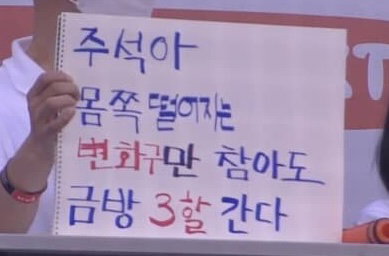 주석아
몸쪽 떨어지는
변화구만 참아도
금방 3할 간다